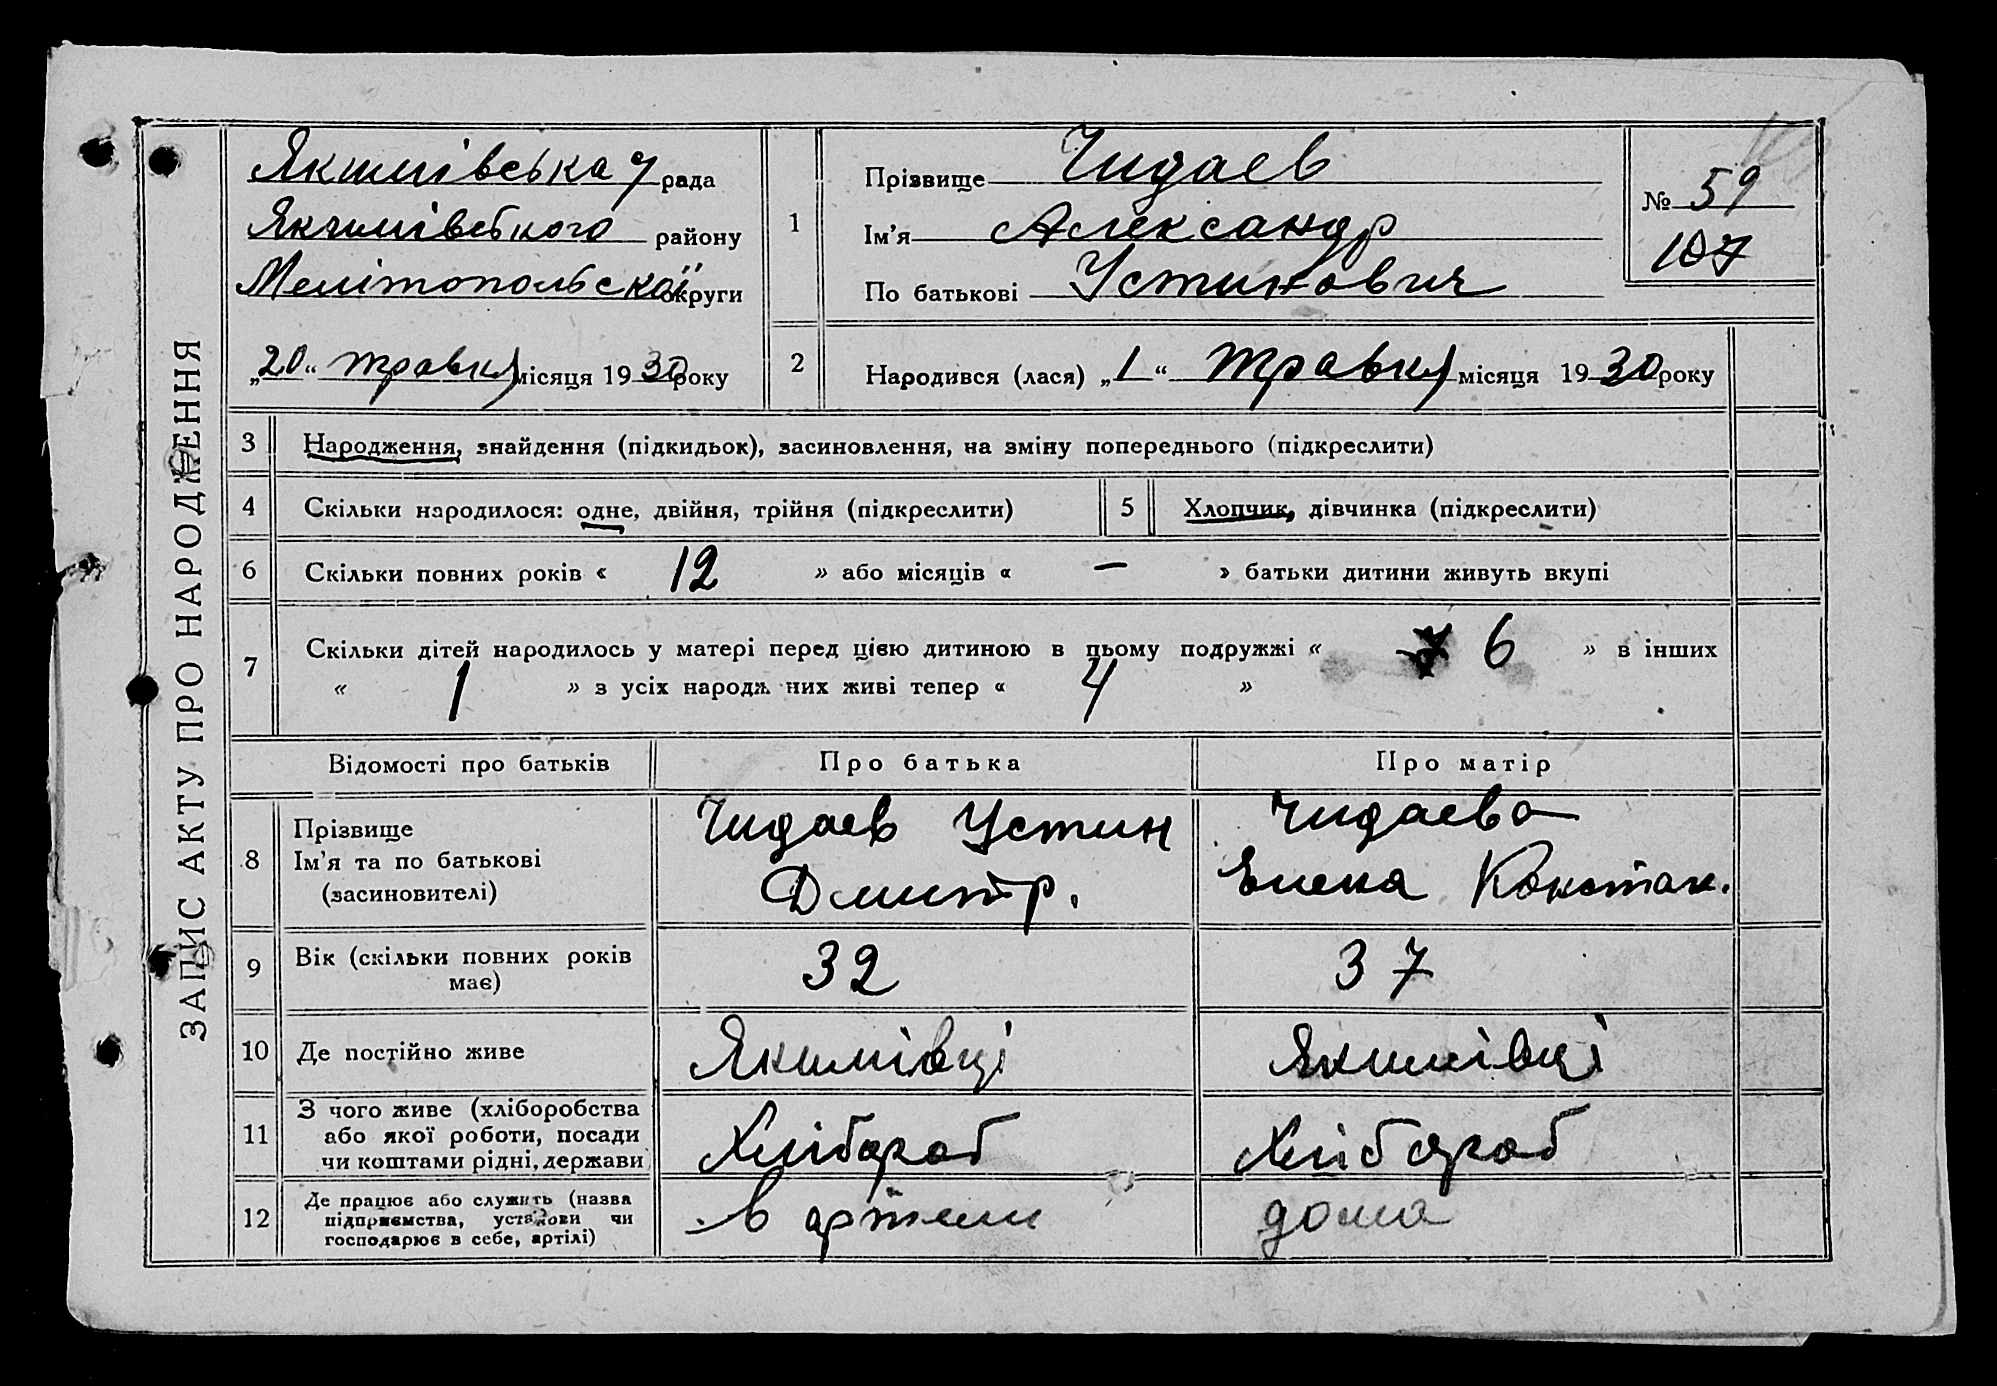 ЗАПИС АКТУ ПРО НАРОДЖЕННЯ
Якимівська рада
Якимівського району
Мелітопольської округи
„20“ травня місяця 1930 року
1
Прізвище Чидаев
Ім'я Александр
По батькові Устинович
№ 59
107
2 Народився (лася) „1“ травня місяця 1930 року
3 Народження, знайдення (підкидьок), засиновлення, на зміну попереднього (підкреслити)
4 Скільки народилося: одне, двійня, трійня (підкреслити) 5 Хлопчик, дівчинка (підкреслити)
6 Скільки повних років « 12 » або місяців « — » батьки дитини живуть вкупі
7 Скільки дітей народилось у матері перед цією дитиною в цьому подружжі « 6 » в інших
« 1 » з усіх народж них живі тепер « 4 »
Відомості про батьків Про батька Про матір
8 Прізвище
Ім'я та по батькові
(засиновителі)
Чидаев Устин
Дмитр.
Чидаева
Елена Констан.
9 Вік (скільки повних років
має)
32
37
10 Де постійно живе Якимівці Якимівці
11 З чого живе (хліборобства
або якої роботи, посади
чи коштами рідні, держави)
Хлібороб
Хлібороб
12 Де працює або служить (назва
підприємства, установи чи
господарює в себе, артілі)
в артели
дома